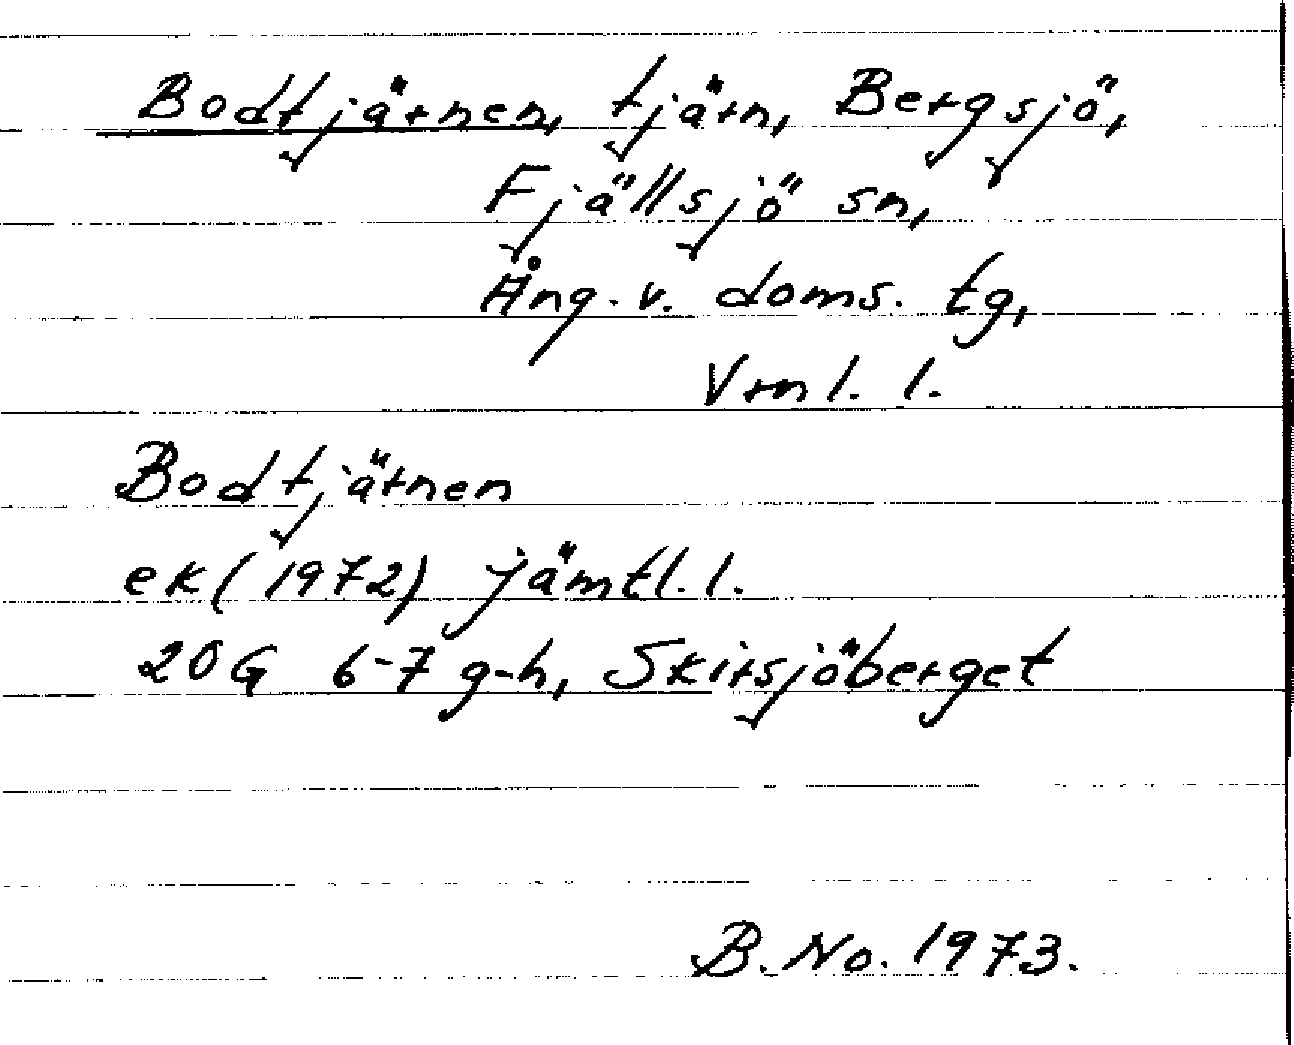 Bodtjärnen, tjärn, Bergsjö,
Fjällsjö sn,
Ång. v. doms. tg,
Vrnl. l.
Bodtjärnen
ek (1972) Jämtl. l.
20G 6-7 g-h, Skirsjöberget
B. No. 1973.